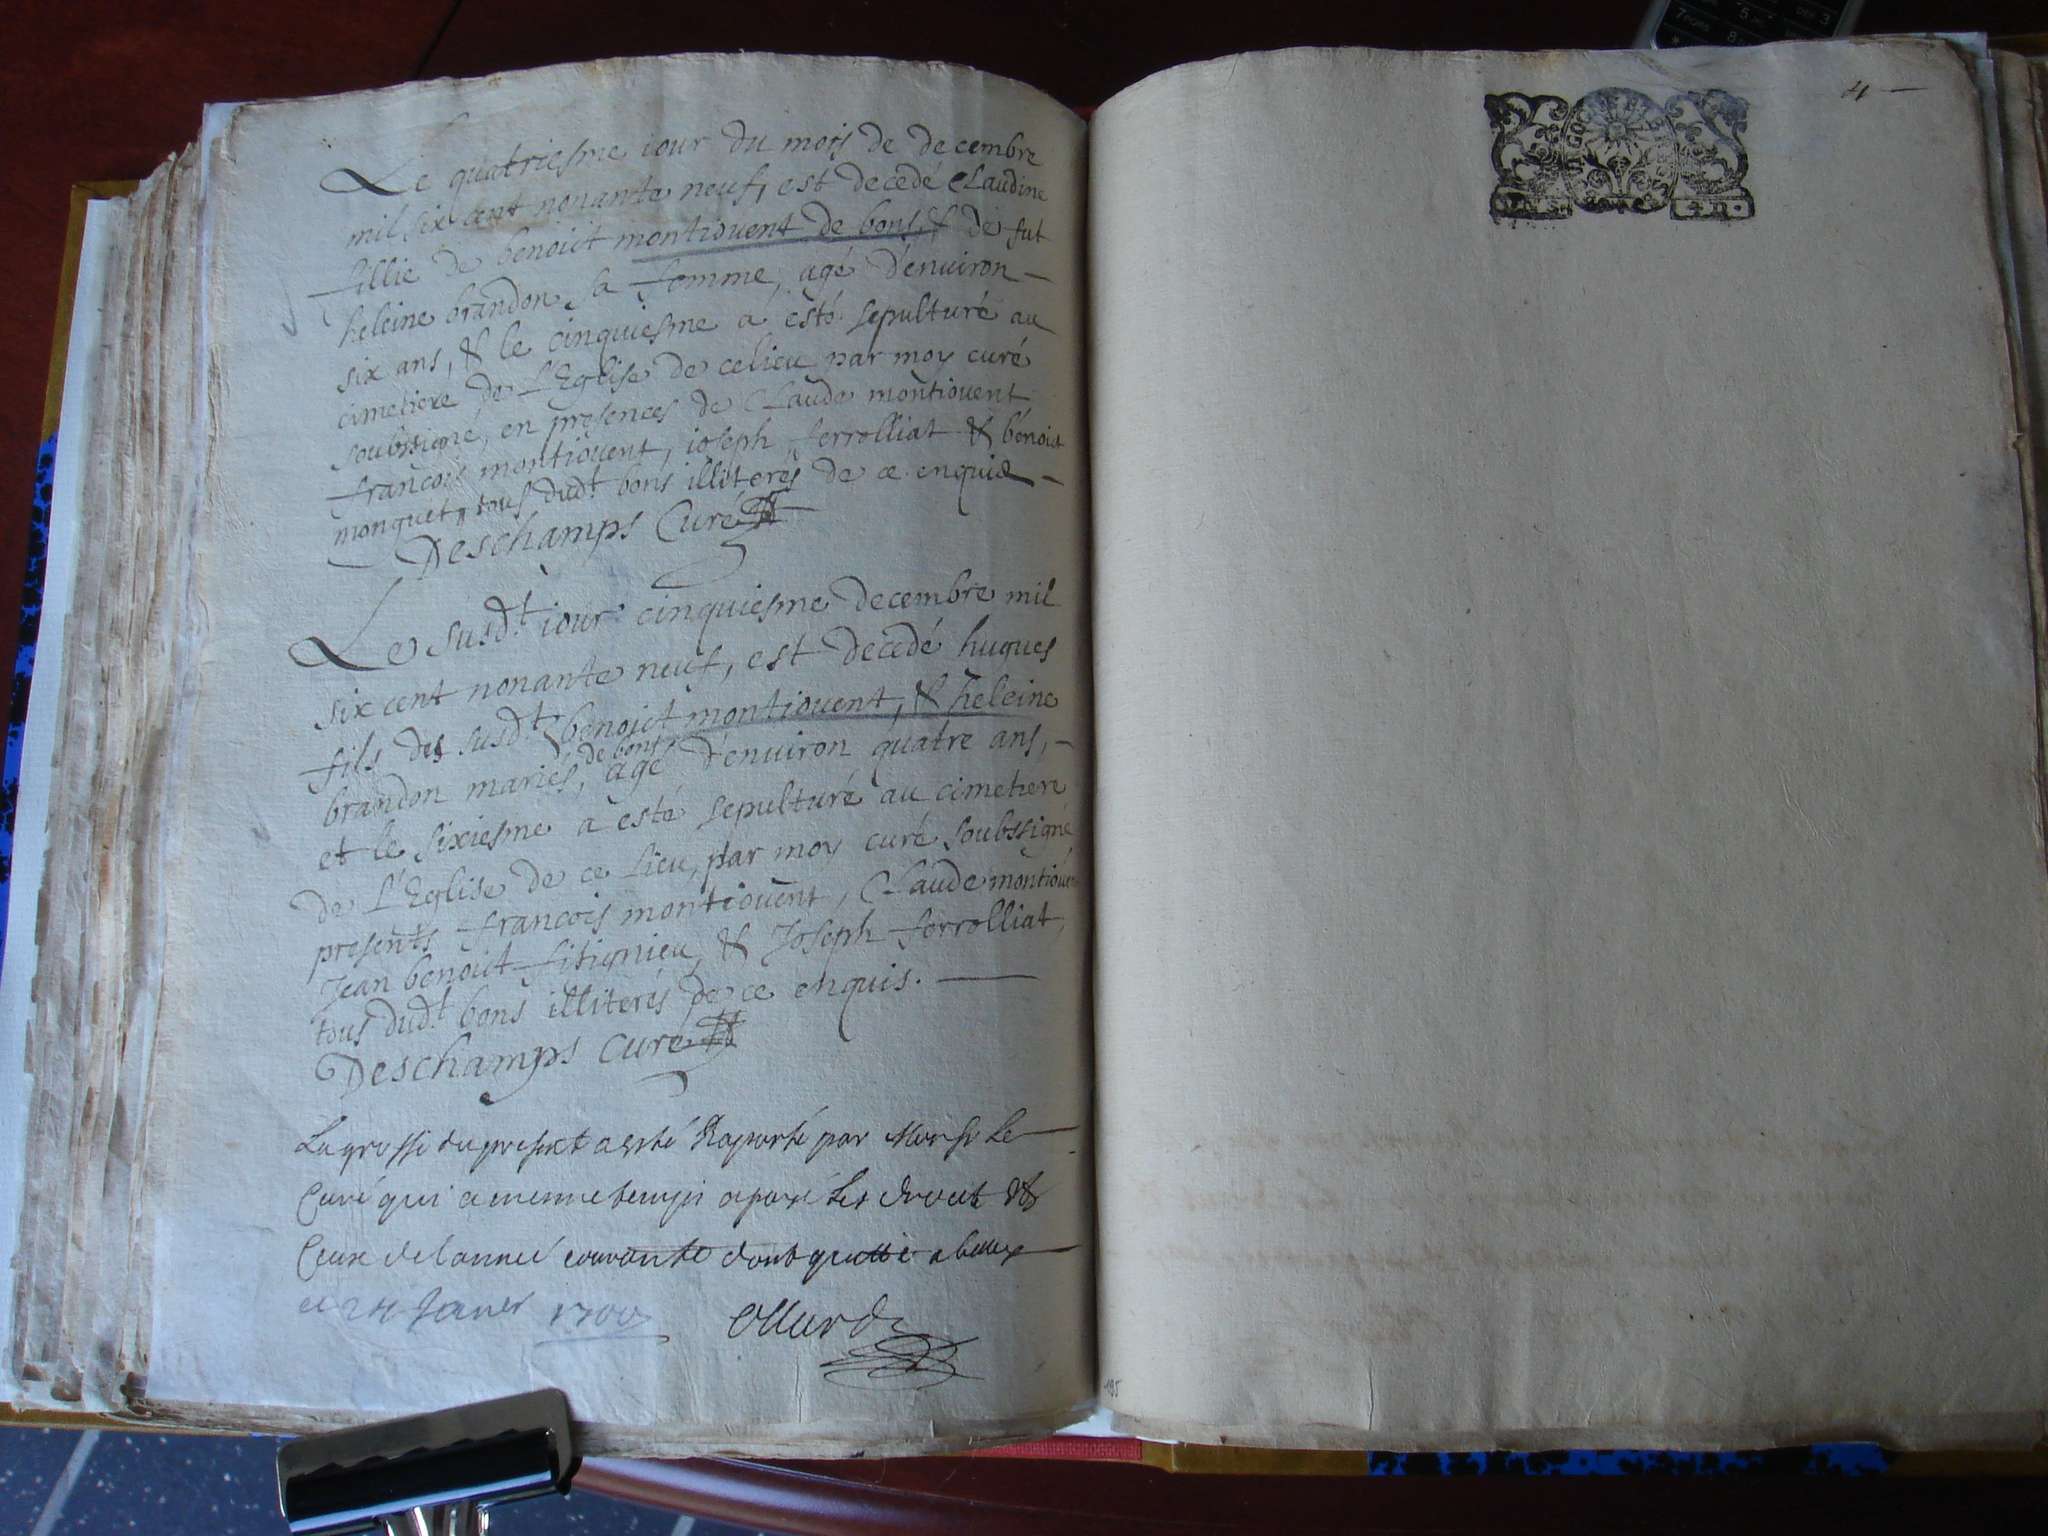 Le quatriesme iour du mois de decembre
mil six cent nonante neuf, est decedé Claudine
fillie de benoict montiouent de bons, & de fut
heleine brandon sa femme, agé d'enuiron
six ans, & le cinquiesme a esté sepulturé au
cimetiere de L'Eglise de celieu par moy curé
soubsigné, en presences de Claude montiouent
françois montiouent, ioseph ferrolliat & benoict
monguet, tous dudt bons illiterés de ce enquis
Deschamps Curé
Le susdt iour cinquiesme decembre mil
six cent nonante neuf, est decedé hugues
fils des susdt benoict montiouent, & heleine
brandon mariés, de bons agé d'enuiron quatre ans,
et le sixiesme a esté sepulturé au cimetiere
de L'Eglise de ce lieu, par moy curé soubssigné
presents françois montiouent, Claude montiouent
Jean benoict fitignieu, & Joseph ferrolliat,
tous dudt bons illiterés de ce enquis.
Deschamps Curé
La grosse du present a esté Raporté par Monsr Le
Curé qui a mesme temps a payé les droit &
Ceux de lannee courante dont quitte a belley
ce 24 Janer 1700
4
195